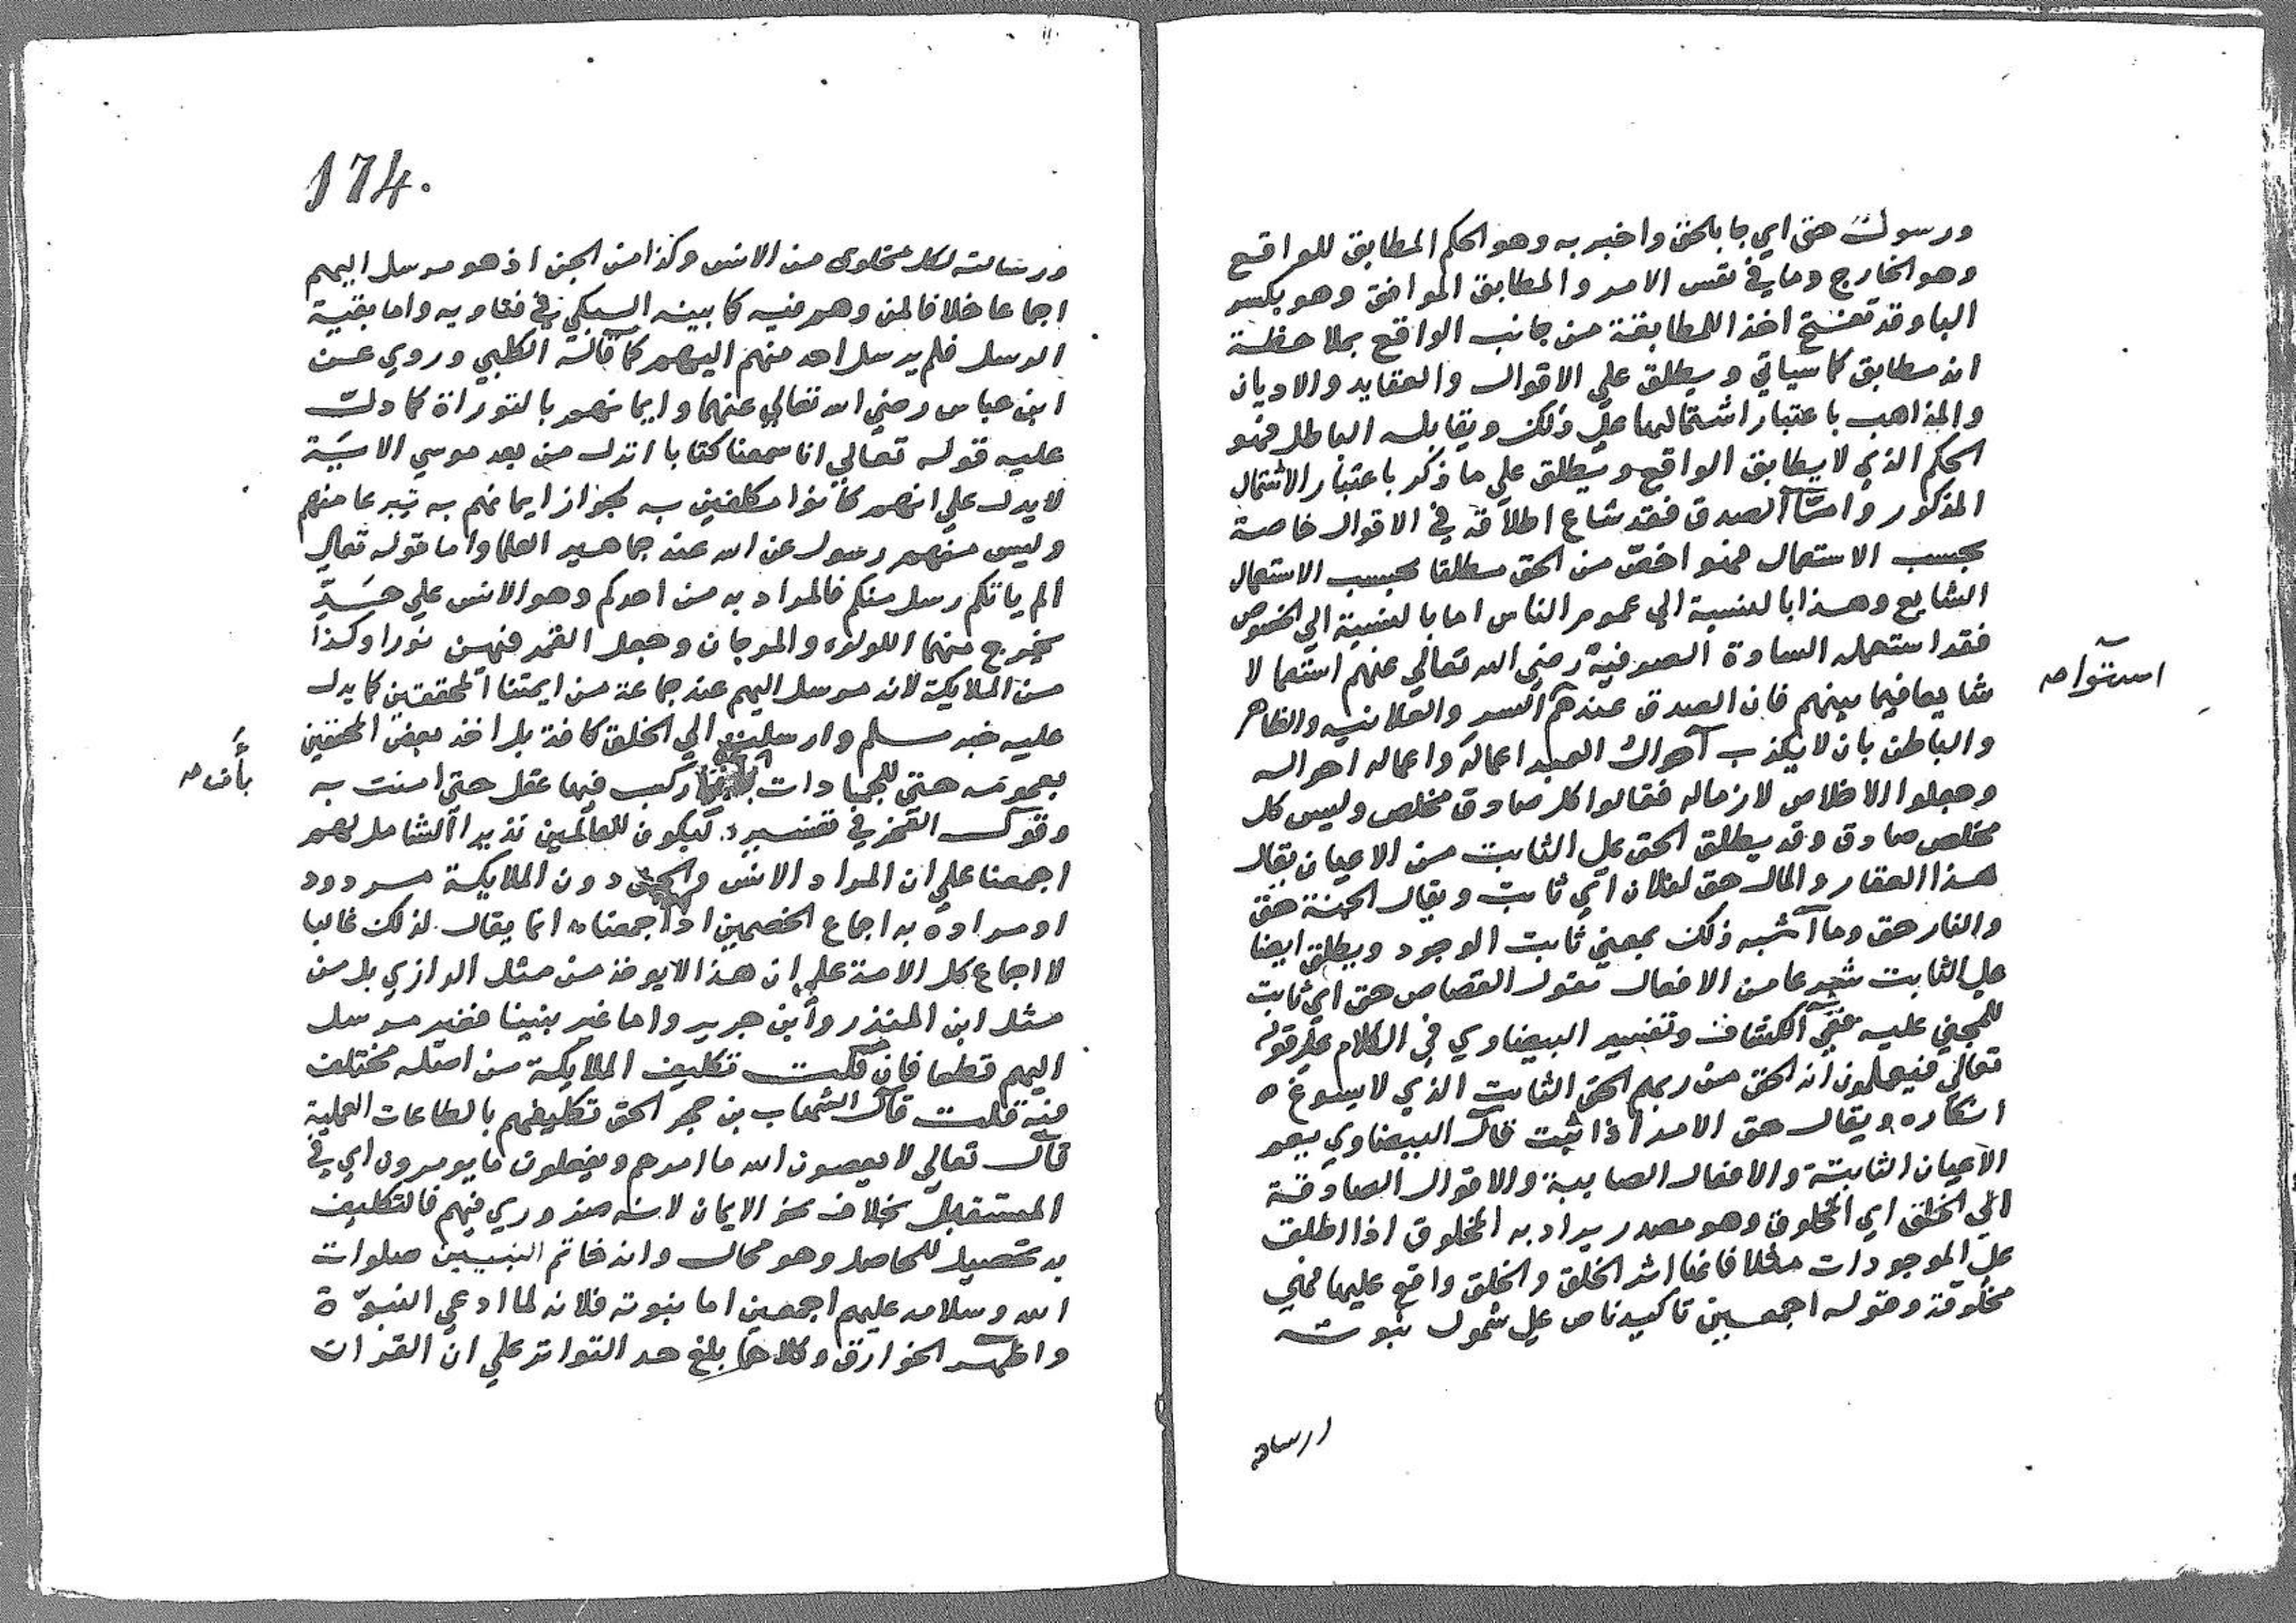 ورسول حق اي جا بالحق واخبر به وهو الحكم المطابق للواقع
وهو الخارج وما في نفس الامر والمطابق الموافق وهو بكسر
البا وقد تفتح اخذا للمطابقة من جانب الواقع بملاحظة
انه مطابق كما سياتي ويطلق علي الاقوال والعقايد والاديان
والمذاهب باعتبار اشتمالها علي ذلك ويقابله الباطل فهو
الحكم الذي لا يطابق الواقع ويطلق علي ما ذكر باعتبار الاشتمال
المذكور وامّا الصدق فقد شاع اطلاقه في الاقوال خاصة
بحسب الاستعمال فهو اخصّ من الحق مطلقا بحسب الاستعمال
الشايع وهذا بالنسبة الي عموم الناس اما بالنسبة الي الخصوص
فقد استعمله السادة الصوفية رضي الله تعالي عنهم استعمالا
شايعا فيما بينهم فان الصدق عندهم السر والعلانيه والظاهر
استوا صح
والباطن بان لا يكذب احوال العبد اعماله واعماله احواله
وجعلوا الاخلاص لازماله فقالوا كل صادق مخلص وليس كل
مخلص صادق وقد يطلق الحق علي الثابت من الاعيان يقال
هذا العقار والمال حق لفلان اي ثابت ويقال الجنة حق
والنار حق وما اشبه ذلك بمعني ثابت الوجود ويطلق ايضا
علي الثابت شرعا من الافعال يقول القصاص حق اي ثابت
للمجني عليه ففي الكشاف وتفسير البيضاوي في الكلام علي قوله
تعالي فيعلمون انه الحق من ربهم الحق الثابت الذي لا يسوغ
انكاره ويقال حق الامر اذا ثبت قال البيضاوي يعم
الاعيان الثابتة والافعال الصايبة والاقوال الصادقة
الي الخلق اي المخلوق وهو مصدر يراد به المخلوق اذا اطلق
علي الموجودات مثلا فانها اثر الخلق والخلق واقع عليها فهي
مخلوقة وقوله اجمعين تاكيد ناص علي شمول ثبوت
ارساله
174.
ورسالته لكل مخلوق من الانس وكذا من الجن اذ هو مرسل اليهم
اجماعا خلافا لمن وهم فيه كما بينه السبكي في فتاويه واما بقية
الرسل فلم يرسل احد منهم اليهم كما قاله الكلبي وروي عن
ابن عباس رضي الله تعالي عنهما وايمانهم بالتوراة كما دلت
عليه قوله تعالي انا سمعنا كتابا انزل من بعد موسي الاية
لا يدل علي انهم كانوا مكلفين به لجواز ايمانهم به تبرعا منهم
وليس منهم رسول عن الله عند جماهير العلما واما قوله تعالي
الم ياتكم رسل منكم فالمراد به من احدكم وهو الانس علي حدّ
يخرج منهما اللولوء والمرجان وجعل القمر فيهن نورا وكذا
من الملايكة لانه مرسل اليهم عند جماعة من ايمتنا المحققين كما يدل
عليه خبر مسلم وارسلت الي الخلق كافة بل اخذ بعض المحققين
بعمومه حتي للجمادات ركب فيها عقل حتي امنت به
بأن صح
وقول الفخر في تفسير ليكون للعالمين نذيرا الشامل لهم
اجمعنا علي ان المراد الانس والجن دون الملايكة مردود
او مراده به اجماع الخصمين اذ اجمعنا انما يقال لذلك غالبا
لا اجماع كل الامة علي ان هذا لا يوخذ من مثل الرازي بل من
مثل ابن المنذر وابن جرير واما غير نبينا فغير مرسل
اليهم قطعا فان قلت تكليف الملايكة من اصله مختلف
فيه قلت قال الشهاب بن حجر الحق تكليفهم بالطاعات العملية
قال تعالي لا يعصون الله ما امرهم ويفعلون ما يومرون اي في
المستقبل بخلاف نحو الايمان لانه ضروري فيهم فالتكليف
به تحصيل للحاصل وهو محال وانه خاتم النبيين صلوات
الله وسلامه عليهم اجمعين اما نبوته فلانه لما ادعي النبوّة
واظهر الخوارق وكلاهما بلغ حد التواتر علي ان القران